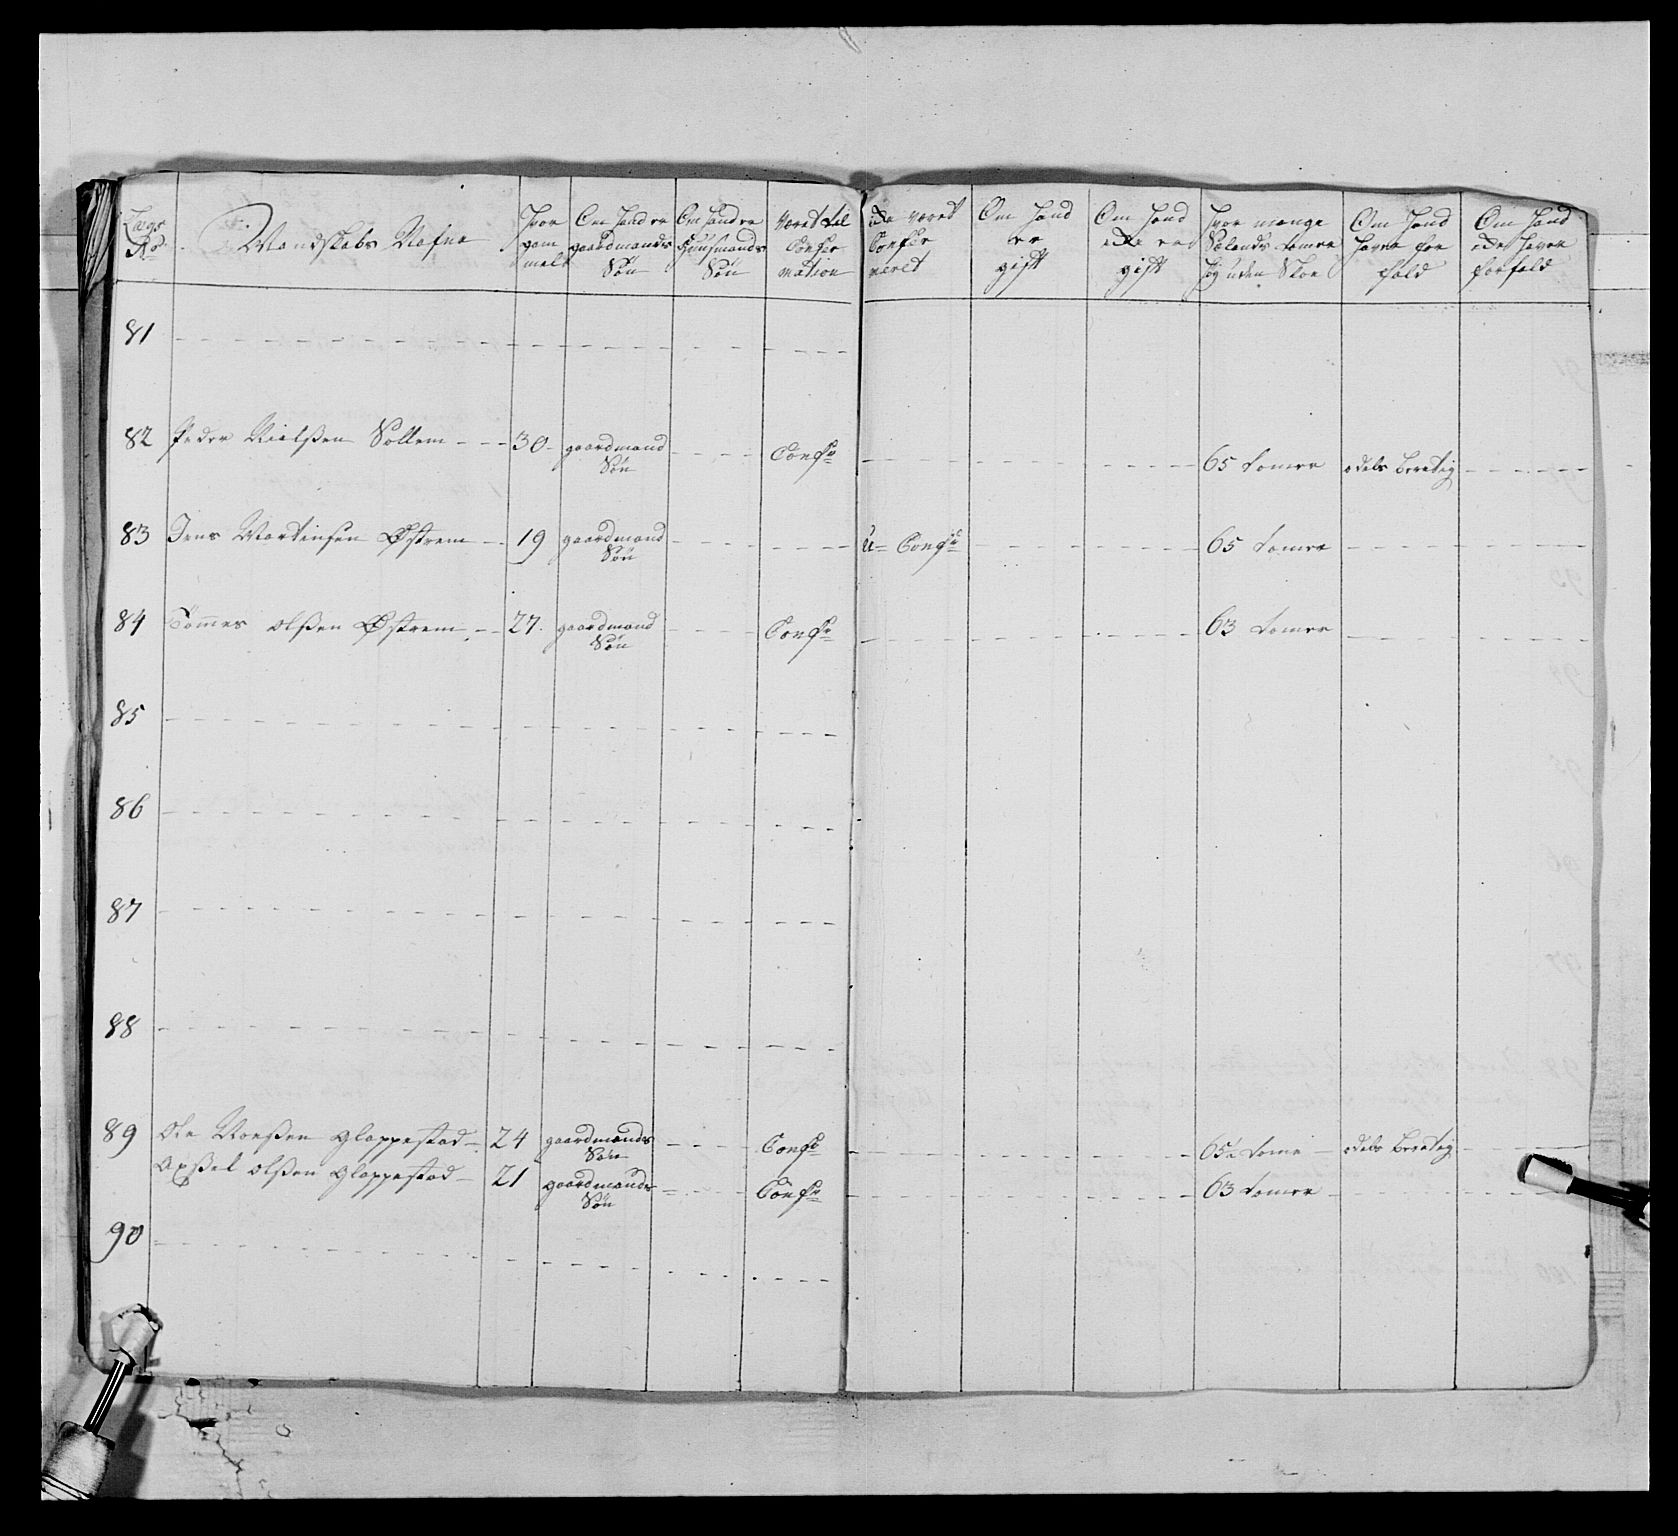 Lægs No. Mandskabs Nafne Hvor gam mel Om hand er gaardmands Søn Om hand er Huusmands Søn Været til Confir mation Ikke været Confir meret Om hand er gift Om hand ikke er gift Hvor mange Sælands tomer høy uden Skoe Om hand haver for fald Om hand ikke haver forfald
81
82 Peder Nielßen Sollem 30 gaardmand Søn Confr 65 tomer odels beretig
83 Jens Mortensen Østrem 19 gaardmand Søn u= Confr 65 tomer
84 Tommes olßen Østrem 27. gaardmand Søn Confr 63 tomer
85
86
87
88
89 Ole Monßen gloppestad 24 gaardmands Søn Confr 65½ tome odels beretig
Axßel olßen gloppestad 21 gaardmands Søn Confr 63 tomer
90